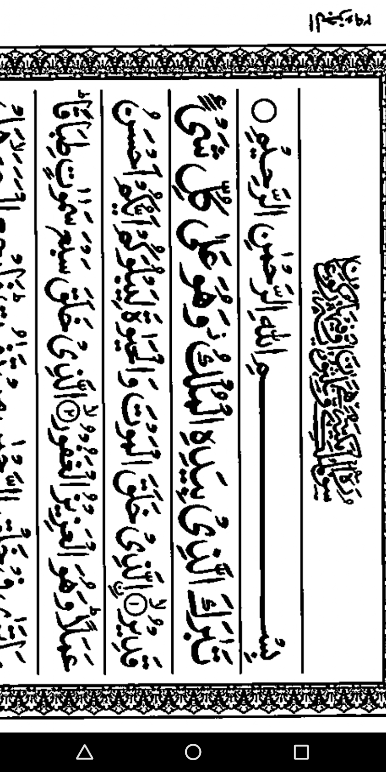 الجزء ٢٩
بِسْمِ اللهِ الرَّحْمٰنِ الرَّحِيْمِ ○
تَبٰرَكَ الَّذِىْ بِيَدِهِ الْمُلْكُ وَهُوَ عَلٰى كُلِّ شَىْءٍ
قَدِيْرُۨ ۙ ① الَّذِىْ خَلَقَ الْمَوْتَ وَالْحَيٰوةَ لِيَبْلُوَكُمْ اَيُّكُمْ اَحْسَنُ
عَمَلًا ؕ وَهُوَ الْعَزِيْزُ الْغَفُوْرُ ۙ ② الَّذِىْ خَلَقَ سَبْعَ سَمٰوٰتٍ طِبَاقًا ؕ